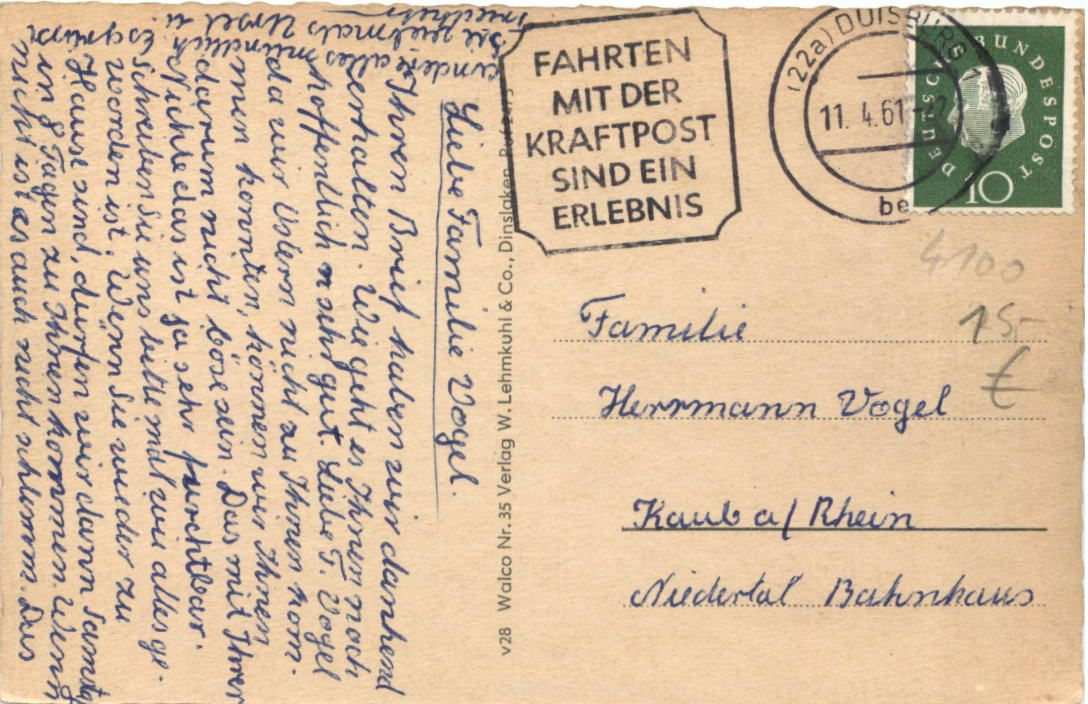 Liebe Familie Vogel.
Ihren Brief haben wir dankend
erhalten. Wie geht es Ihnen noch
hoffentlich sehr gut. Liebe F. Vogel
da wir Ostern nicht zu Ihnen kom-
men konnten, können wir Ihnen
darum nicht böse sein. Das mit Ihrer
Nichte das ist ja sehr furchtbar.
Schreiben Sie uns bitte mal wie alles ge-
worden ist. Wenn Sie wieder zu
Hause sind, dürfen wir dann Samstg
in 8 Tagen zu Ihnen kommen. Wenn
nicht ist es auch nicht schlimm. Das
andere alles mündlich
Es grüsst
Sie vielmals Ursel u.
v28 Walco Nr. 35 Verlag W. Lehmkuhl & Co., Dinslaken Ruf 2473
FAHRTEN
MIT DER
KRAFTPOST
SIND EIN
ERLEBNIS
(22a) DUISBURG
11. 4.61
be
DEUTSCHE BUNDESPOST
10
4100
15,-
€
Familie
Herrmann Vogel
Kaub a/Rhein
Niedertal Bahnhaus